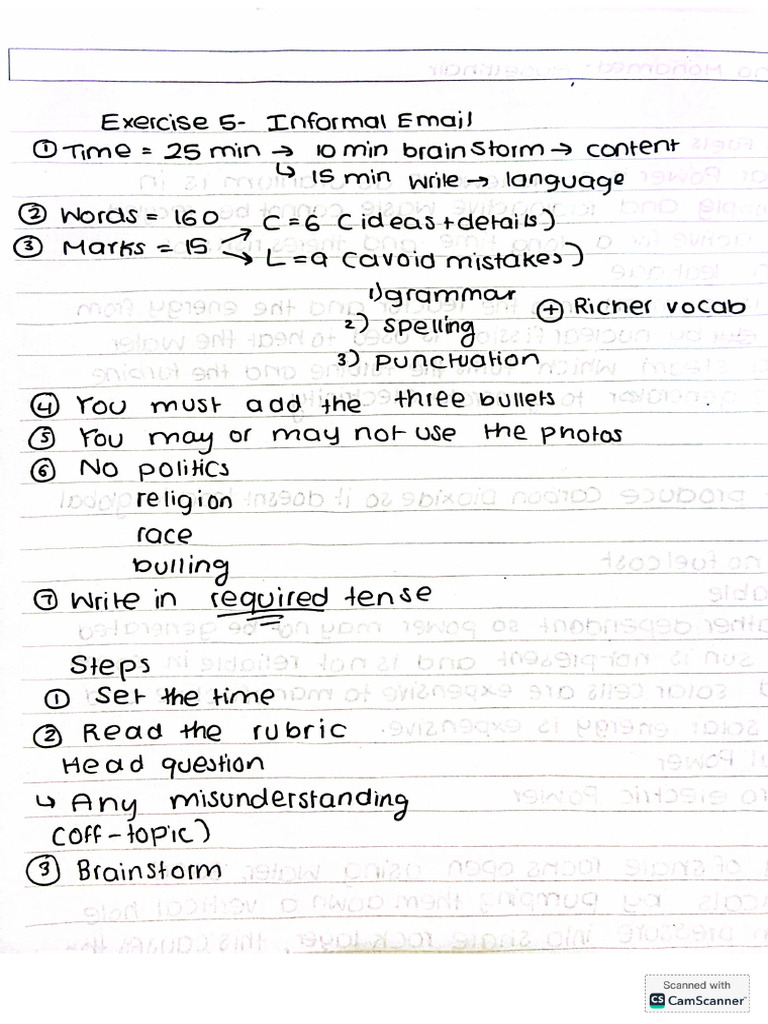 Exercise 5- Informal Email
① Time = 25 min → 10 min brainstorm → content
↳ 15 min write → language
② Words = 160
C = 6 (ideas + details)
③ Marks = 15
L = 9 (avoid mistakes)
1) grammar
⊕ Richer vocab
2) spelling
3) punctuation
④ You must add the three bullets
⑤ You may or may not use the photos
⑥ No politics
religion
race
bulling
⑦ Write in required tense
Steps
① Set the time
② Read the rubric
Head question
↳ Any misunderstanding
(off-topic)
③ Brainstorm
Scanned with
CS CamScanner